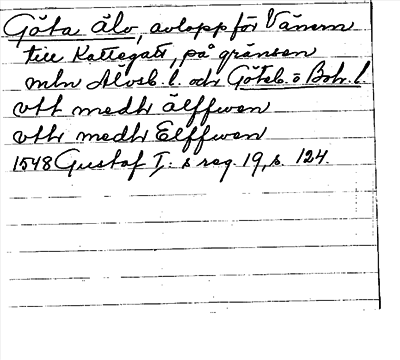 Göta älv, avlopp för Vänern
till Kattegatt, på gränsen
mln Älvsb. l. och Göteb. o Boh. l.
vtt medh älffwen
vthr medhr Elffwen
1548 Gustaf I:s reg. 19, s. 124.